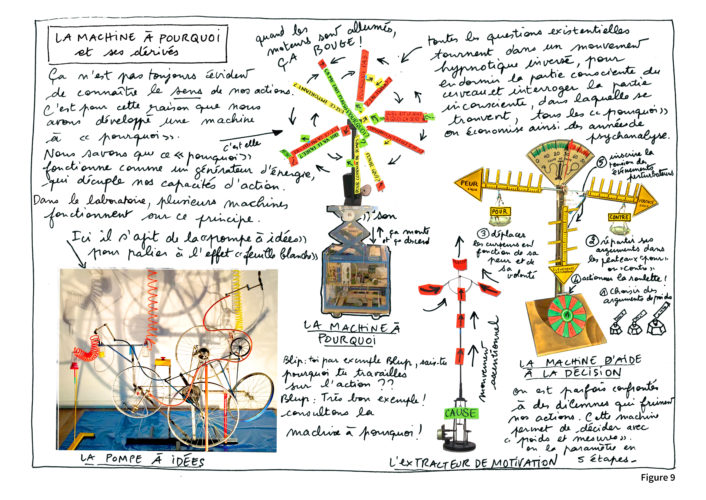 LA MACHINE À POURQUOI
et ses dérivés
Ça n'est pas toujours évident
de connaître le sens de nos actions.
C'est pour cette raison que nous
avons développé une machine
à « pourquoi ».
Nous savons que ce « pourquoi »
fonctionne comme un générateur d'énergie,
qui décuple nos capacités d'action.
Dans le laboratoire, plusieurs machines
fonctionnent sur ce principe.
Ici il s'agit de la « pompe à idées »
pour palier à l'effet « feuille blanche »
LA POMPE À IDÉES
quand les
moteurs sont allumés,
ÇA
BOUGE !
c'est elle
son
ça monte
et ça descend
LA MACHINE À
POURQUOI
Blip : toi par exemple Blup, sais-tu
pourquoi tu travailles
sur l'action ??
Blup : Très bon exemple !
consultons la
machine à pourquoi !
toutes les questions existentielles
tournent dans un mouvement
hypnotique inversé, pour
endormir la partie consciente du
cerveau et interroger la partie
inconsciente, dans laquelle se
trouvent, tous les « pourquoi »
on économise ainsi des années de
psychanalyse.
CAUSE
mouvement
ascentionnel
L'EXTRACTEUR DE MOTIVATION
PEUR
POUR
CONTRE
⑤ inscrire la
tension de
évènements
perturbateurs
③ déplacer
les curseurs en
fonction de sa
peur et de
sa
volonté
② répartir ses
arguments dans
les plateaux « pour »
ou « contre »
④ actionner la roulette !
① Choisir des
arguments de poids
LA MACHINE D'AIDE
À LA DÉCISION
On est parfois confrontés
à des dilemnes qui freinent
nos actions. Cette machine
permet de décider avec
« poids et mesures ».
on la paramètre en
5 étapes_
Figure 9